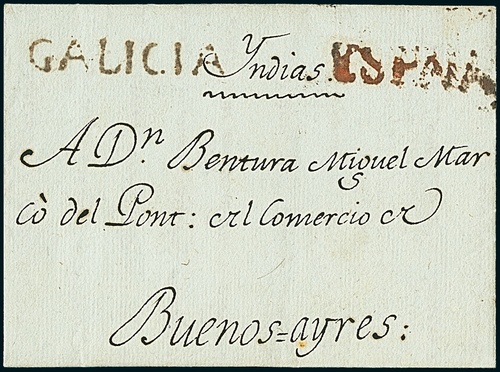 GALICIA Yndias. ESPAÑA
A Dn. Bentura Miguel Mar
cò del Pont: del Comercio de
Buenos=ayres: